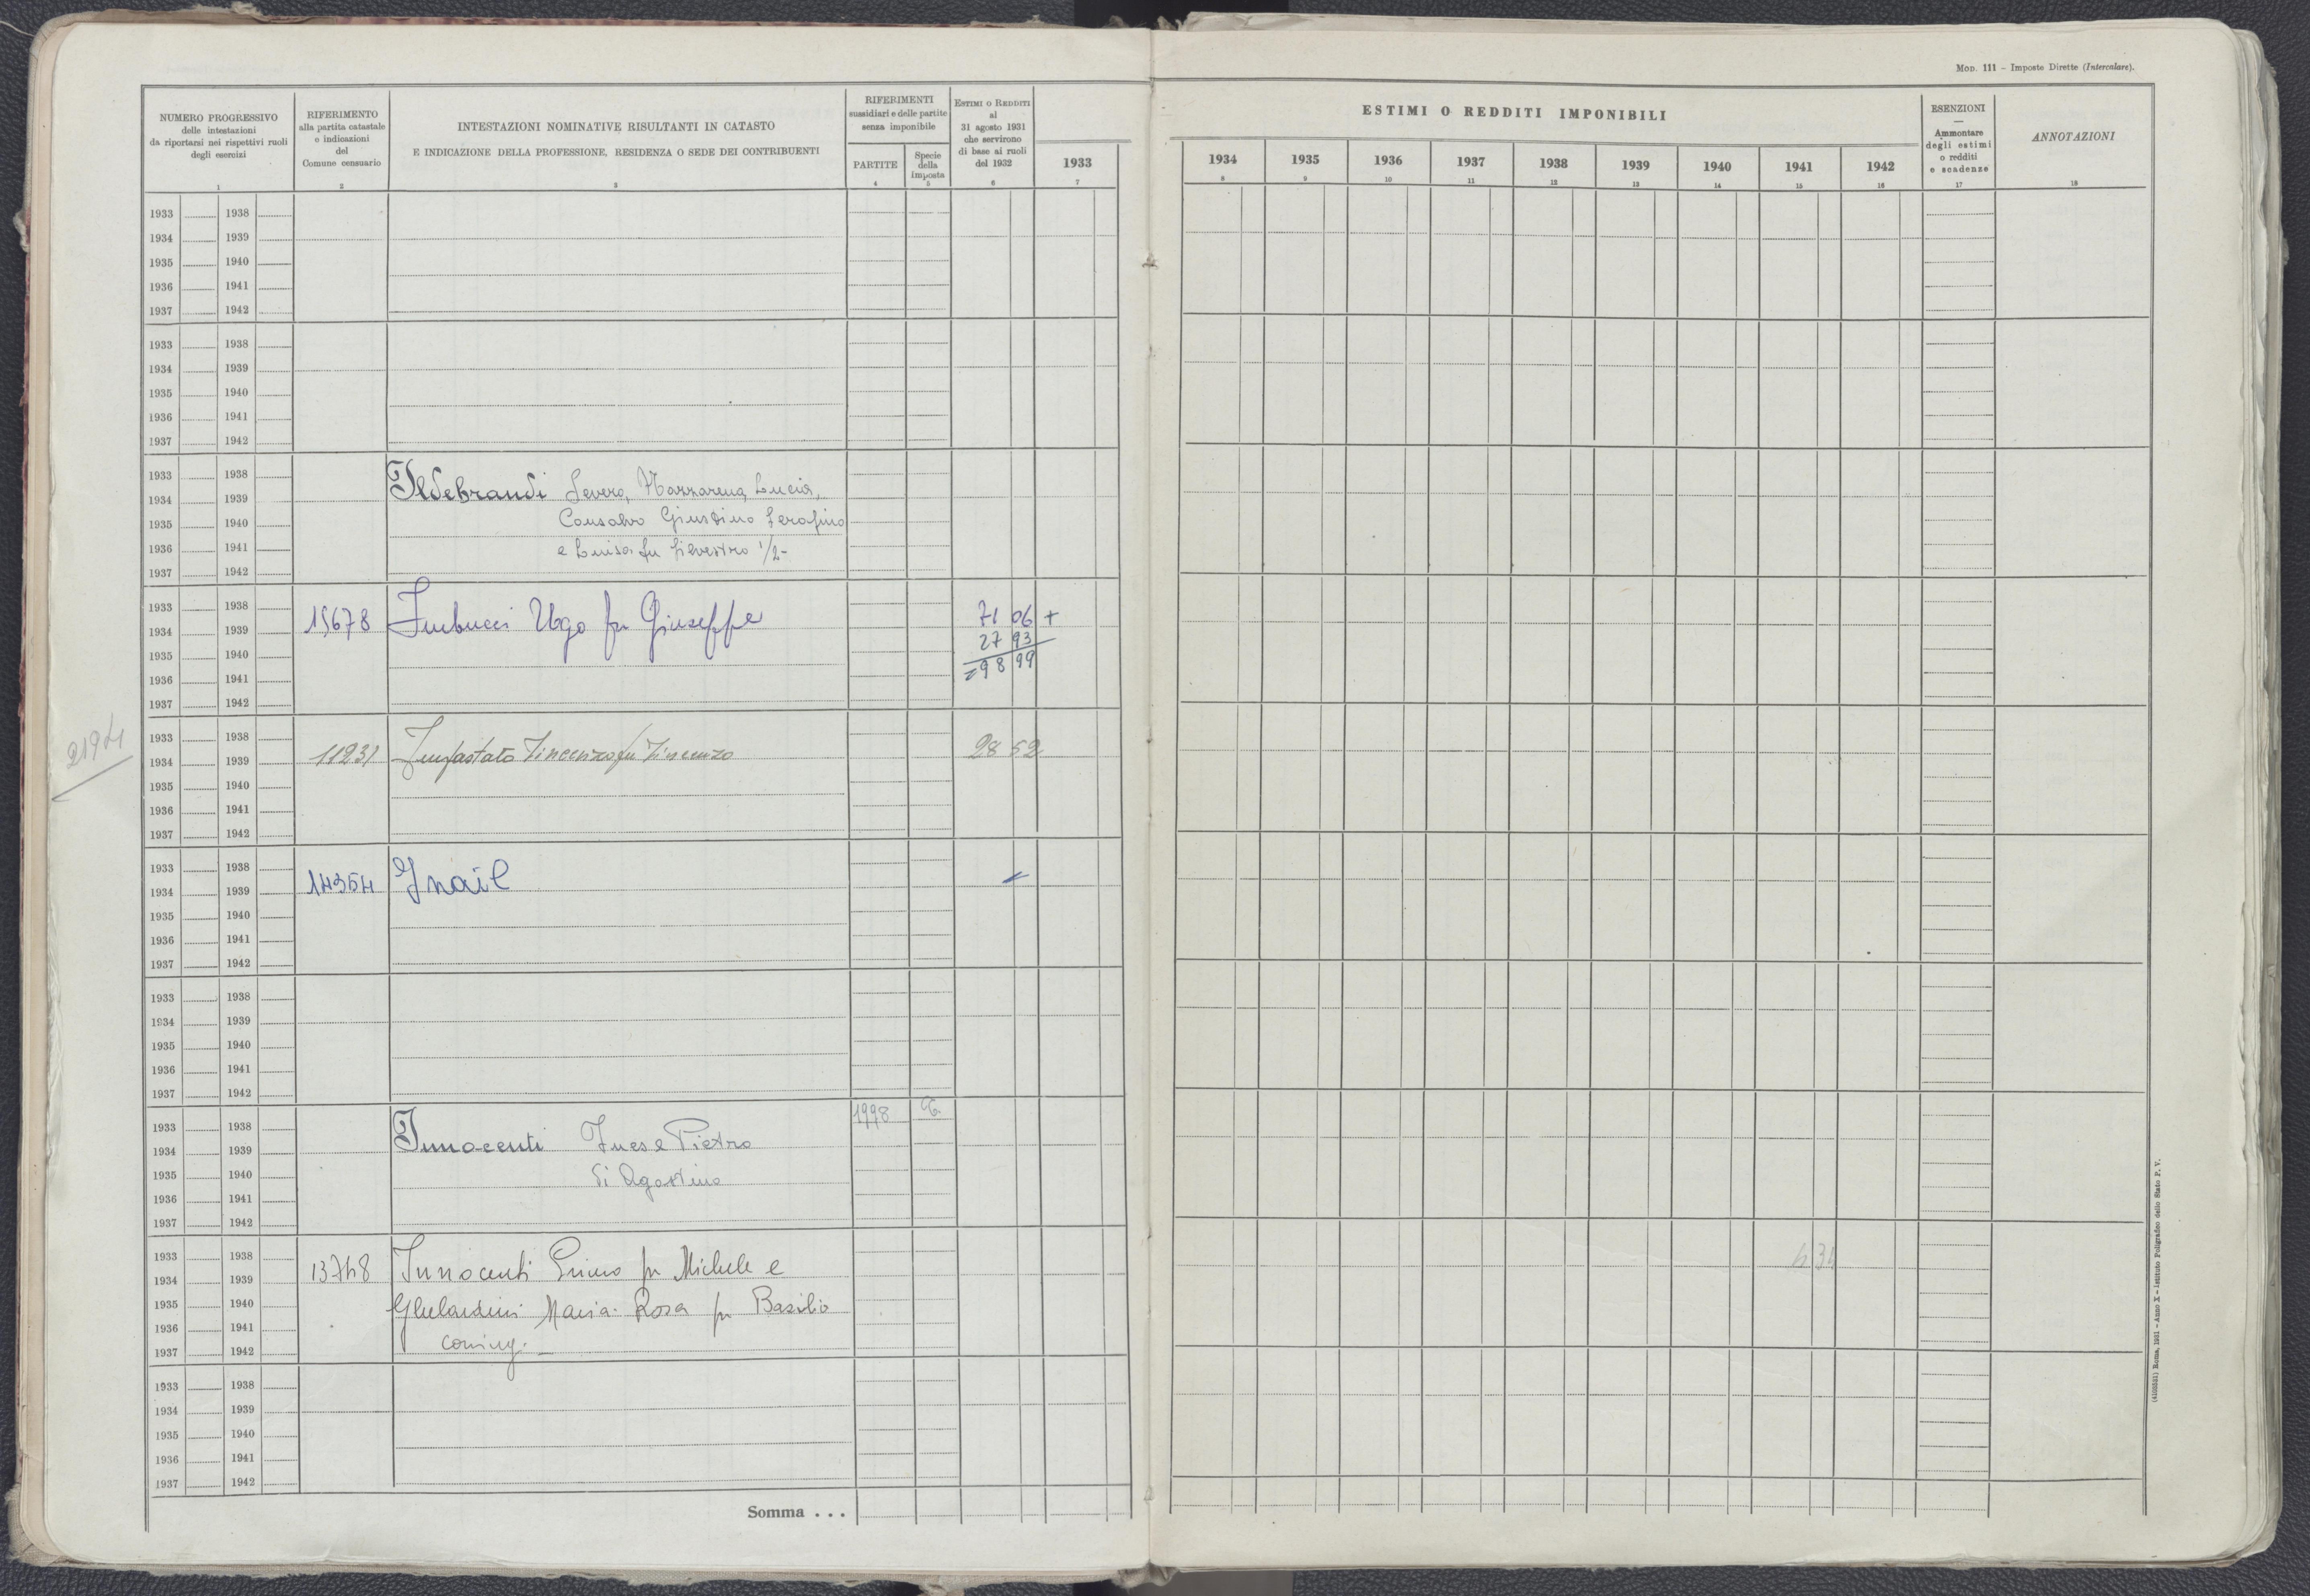 Mod. 111 - Imposte Dirette (Intercalare).
NUMERO PROGRESSIVO
delle intestazioni
da riportarsi nei rispettivi ruoli
degli esercizi
1
RIFERIMENTO
alla partita catastale
o indicazioni
del
Comune censuario
2
INTESTAZIONI NOMINATIVE RISULTANTI IN CATASTO
E INDICAZIONE DELLA PROFESSIONE, RESIDENZA O SEDE DEI CONTRIBUENTI
3
RIFERIMENTI
sussidiari e delle partite
senza imponibile
PARTITE
4
Specie
della
imposta
5
ESTIMI O REDDITI
al
31 agosto 1931
che servirono
di base ai ruoli
del 1932
6
1933
7
ESTIMI O REDDITI IMPONIBILI
1934 1935 1936 1937 1938 1939 1940 1941 1942
8 9 10 11 12 13 14 15 16
ESENZIONI
—
Ammontare
degli estimi
o redditi
e scadenze
17
ANNOTAZIONI
18
1933 1938
1934 1939
1935 1940
1936 1941
1937 1942
1933 1938
1934 1939
1935 1940
1936 1941
1937 1942
1933 1938
1934 1939 Ildebrandi Severo, Nazzarena, Lucia,
1935 1940 Consalvo Giustino Serafino
1936 1941 e Luisa fu Silvestro 1/2-
1937 1942
1933 1938 71 06 +
1934 1939 15678 Imbucci Ugo fu Giuseppe
27 93
1935 1940 = 98 99
1936 1941
1937 1942
1933 1938
2194
1934 1939 11231 Infastato Vincenzo fu Vincenzo 28 52
1935 1940
1936 1941
1937 1942
1933 1938
1934 1939 14354 Inail
1935 1940
1936 1941
1937 1942
1933 1938
1934 1939
1935 1940
1936 1941
1937 1942
1998
1933 1938
1934 1939 Innocenti Ines e Pietro
1935 1940 di Agostino
1936 1941
1937 1942
1933 1938
1934 1939 13748 Innocenti Primo fu Michele e
1935 1940 Ghelardini Maria Rosa fu Basilio
1936 1941
1937 1942 coniug. -
1933 1938
1934 1939
1935 1940
1936 1941
1937 1942
Somma . . .
Roma, 1931 - Anno X - Istituto Poligrafico dello Stato P. V.